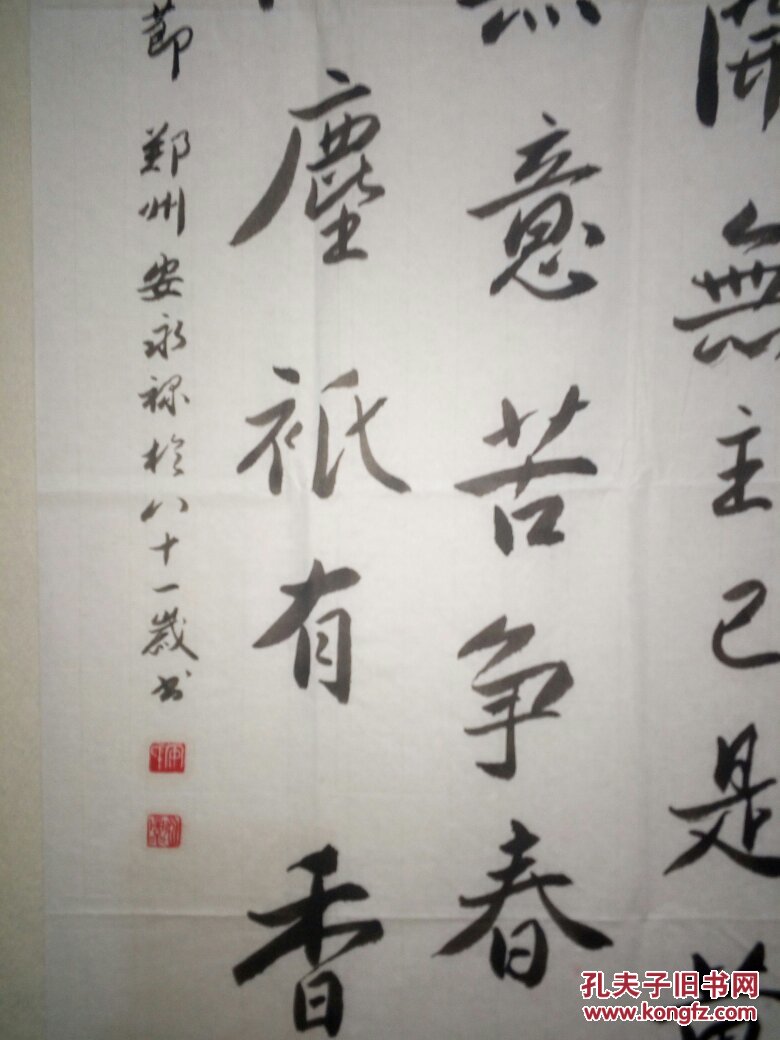 開無主已是黄
意苦争春
塵祇有香
節 鄭州安永祿於八十一歲书
孔夫子旧书网
www.kongfz.com